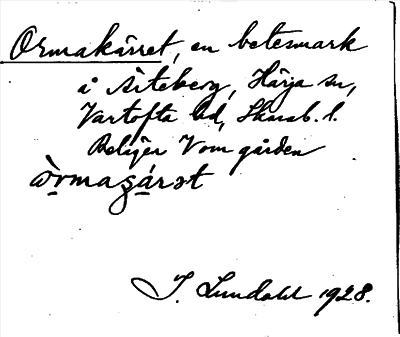 Ormakärret, en betesmark
å Åteberg, Härja sn,
Vartofta hd, Skarab. l.
Beläget V om gården
òrmaʒárət
I. Lundahl 1928.